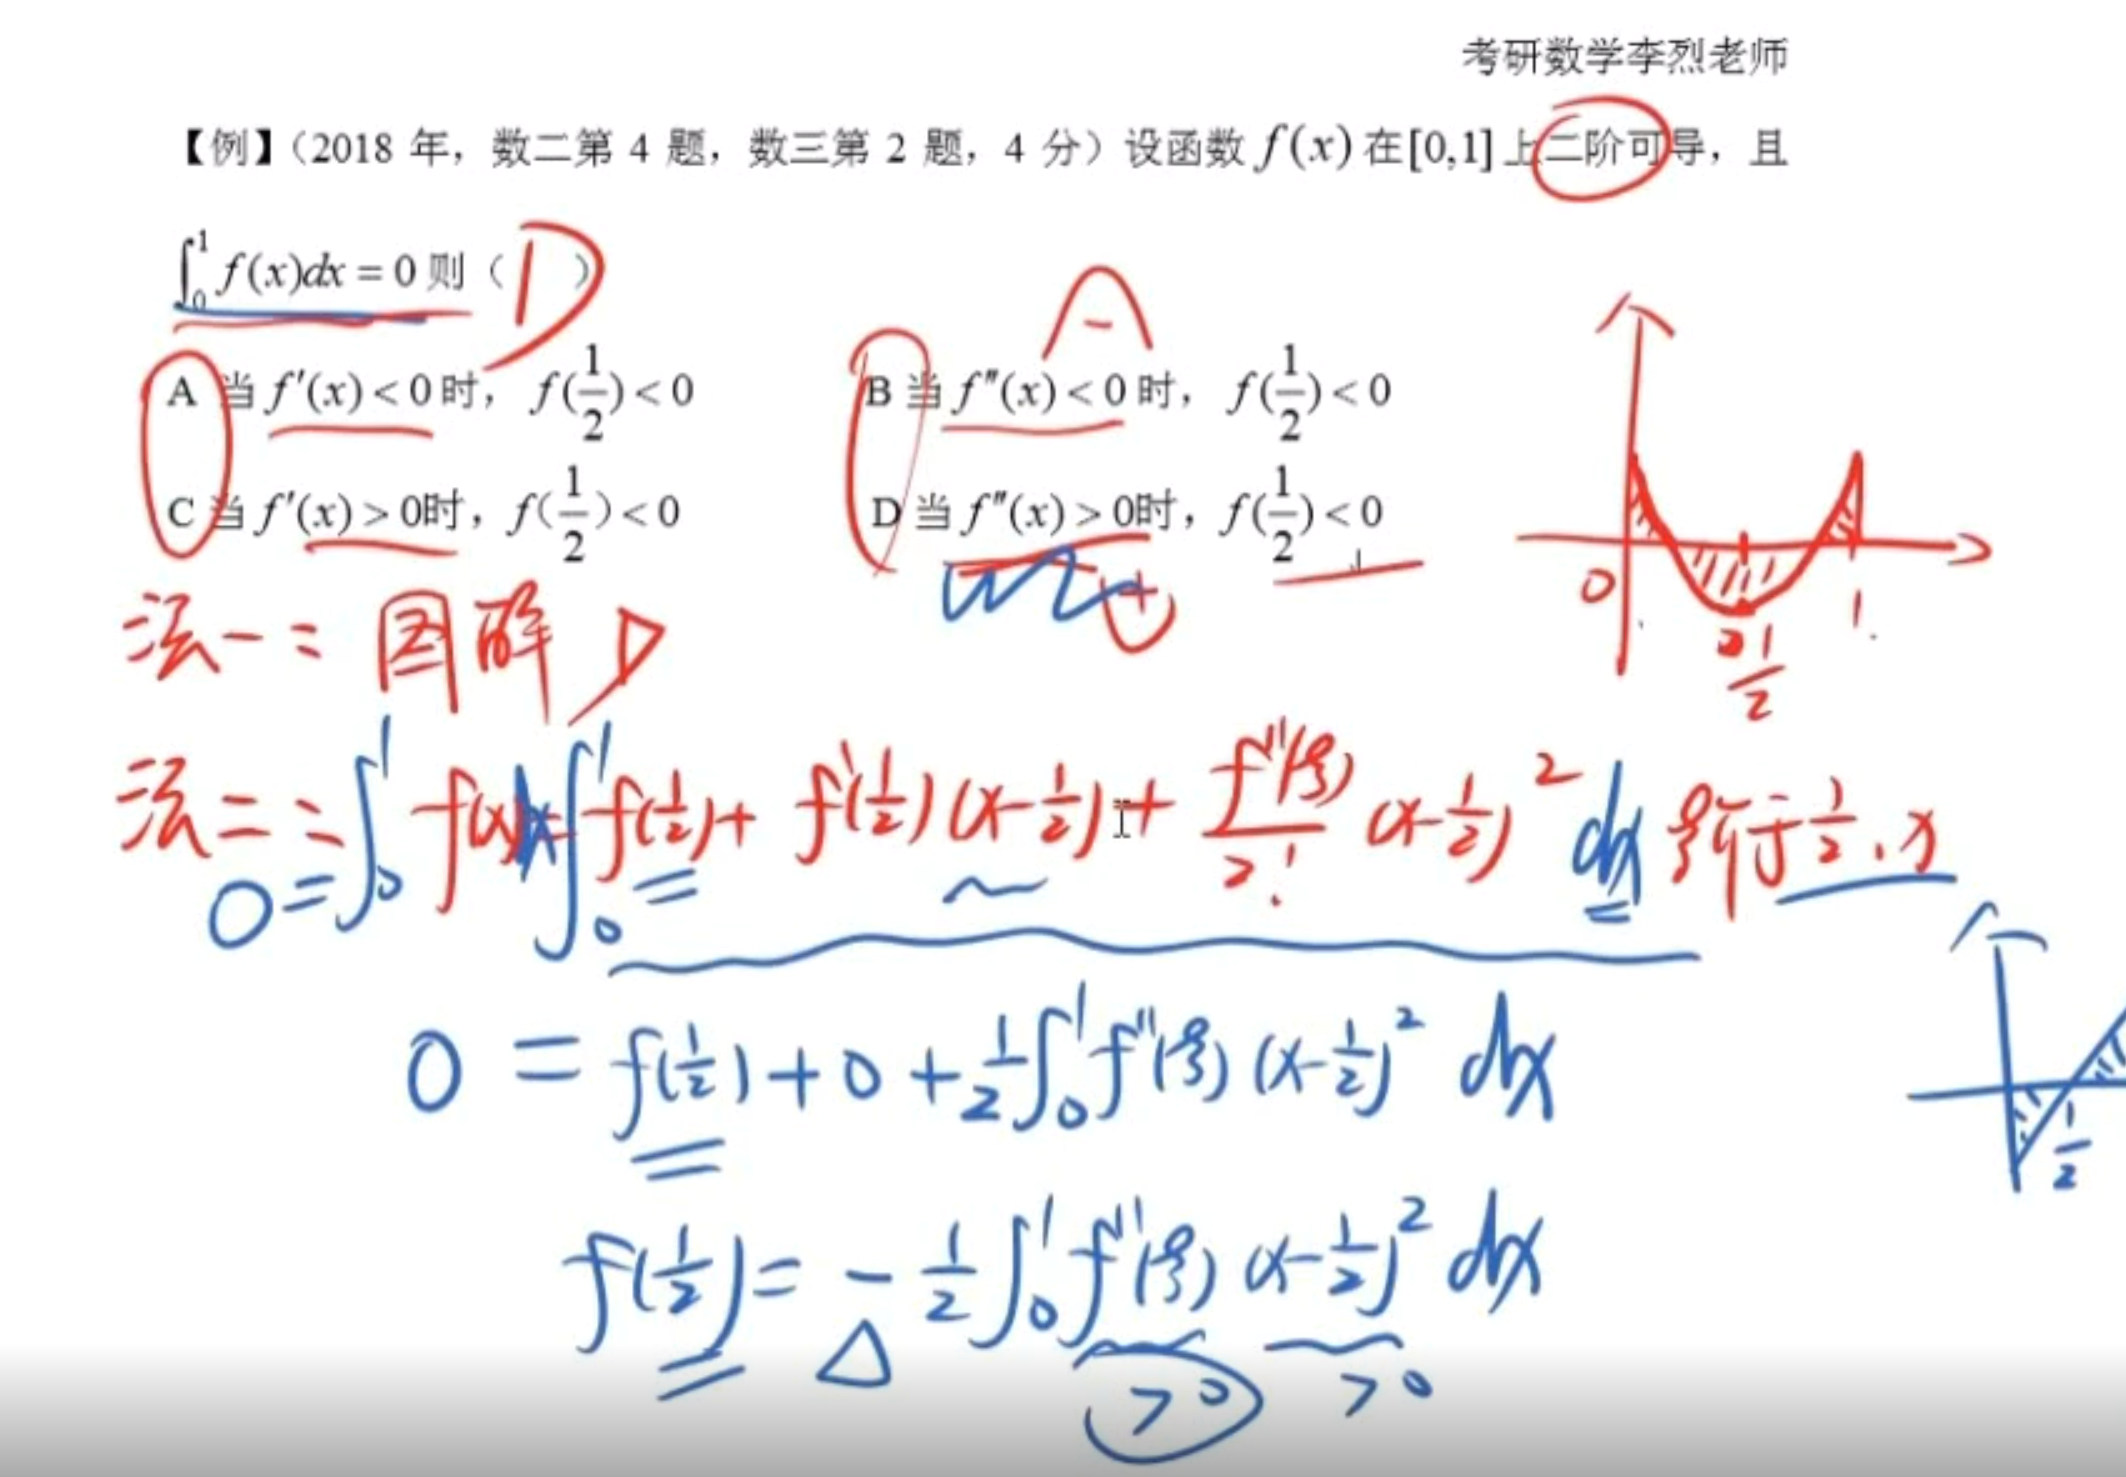 考研数学李烈老师
【例】(2018 年，数二第 4 题，数三第 2 题，4 分) 设函数 f(x) 在[0,1]上二阶可导，且
∫₀¹ f(x)dx = 0 则 ( D )
A 当 f′(x) < 0 时， f(1/2) < 0 B 当 f″(x) < 0 时， f(1/2) < 0
C 当 f′(x) > 0时，f(1/2) < 0 D 当 f″(x) > 0时，f(1/2) < 0
−
+
0 1/2 1
法一: 图解 D
法二: f(x) = f(1/2) + f′(1/2)(x-1/2) + f″(ξ)/2! (x-1/2)² ξ介于1/2,x
0 = ∫₀¹ dx ∫₀¹ dx
0 = f(1/2) + 0 + 1/2 ∫₀¹ f″(ξ) (x-1/2)² dx
1/2
f(1/2) = - 1/2 ∫₀¹ f″(ξ) (x-1/2)² dx
>0 >0